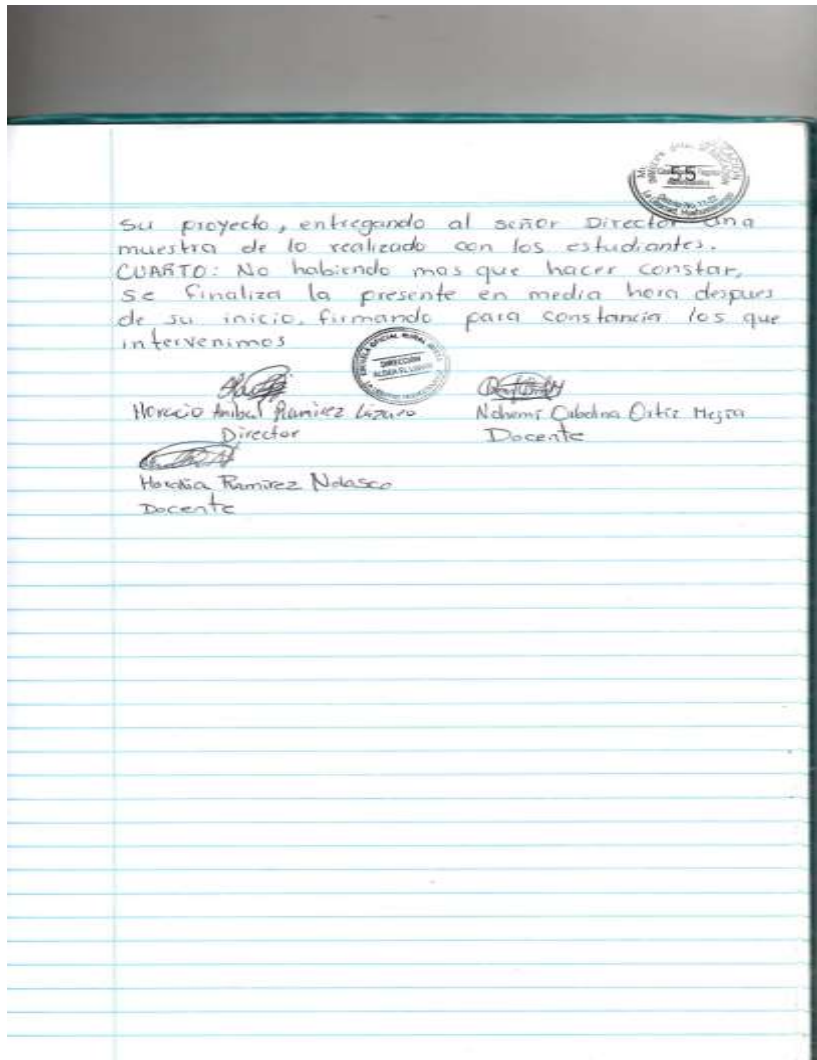 55
su proyecto, entregando al señor Director una
muestra de lo realizado con los estudiantes.
CUARTO: No habiendo mas que hacer constar,
se finaliza la presente en media hora despues
de su inicio, firmando para constancia los que
intervenimos
ESCUELA OFICIAL RURAL
DIRECCIÓN
Horacio Anibal Ramirez Lázaro
Nohemi Ortiz Mejia
Director
Docente
Ramirez Nolasco
Docente